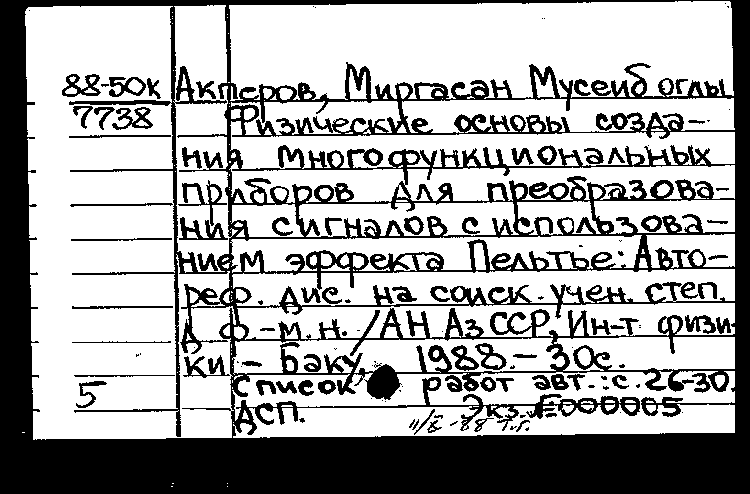 88-50к Актеров, Миргасан Мусеиб оглы
7738 Физические основы созда-
ния многофункциональных
приборов для преобразова-
ния сигналов с использова-
нием эффекта Пельтье: Авто-
реф. дис. на соиск. учен. степ.
д ф.-м. н. / АН АзССР, Ин-т физи-
ки - Баку, 1988. - 30с.
Список работ авт.: с. 26-30.
5 ДСП. Экз. №000005